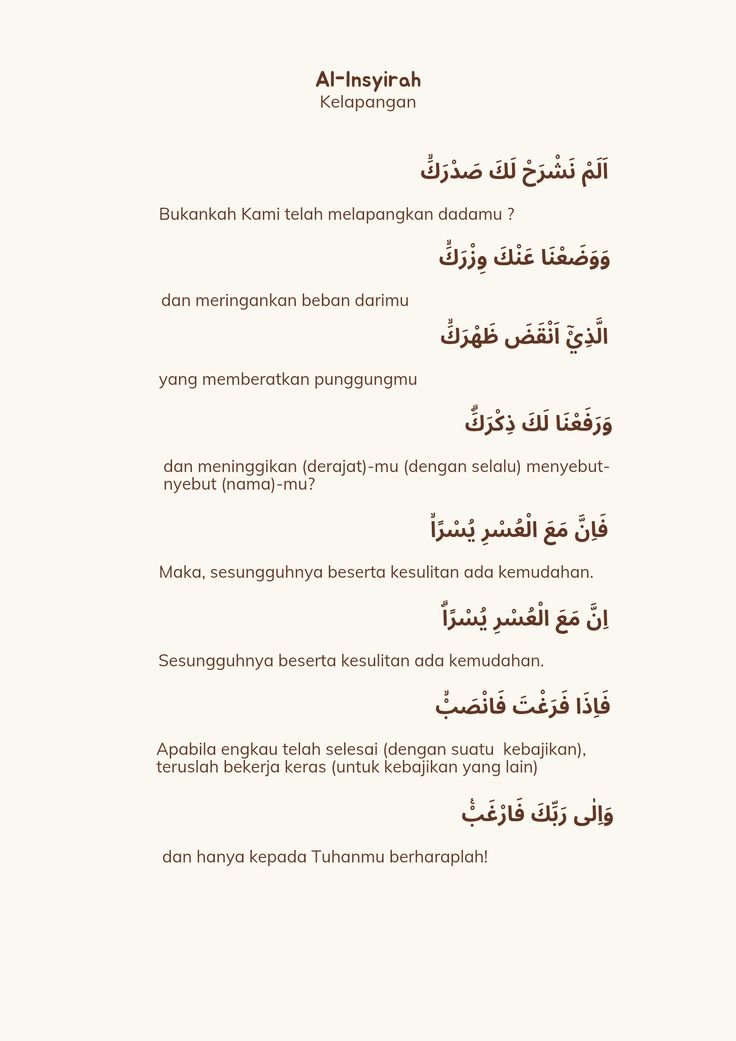 Al-Insyirah
Kelapangan
اَلَمْ نَشْرَحْ لَكَ صَدْرَكَۙ
Bukankah Kami telah melapangkan dadamu ?
وَوَضَعْنَا عَنْكَ وِزْرَكَۙ
dan meringankan beban darimu
الَّذِيْٓ اَنْقَضَ ظَهْرَكَۙ
yang memberatkan punggungmu
وَرَفَعْنَا لَكَ ذِكْرَكَۗ
dan meninggikan (derajat)-mu (dengan selalu) menyebut-
nyebut (nama)-mu?
فَاِنَّ مَعَ الْعُسْرِ يُسْرًاۙ
Maka, sesungguhnya beserta kesulitan ada kemudahan.
اِنَّ مَعَ الْعُسْرِ يُسْرًاۗ
Sesungguhnya beserta kesulitan ada kemudahan.
فَاِذَا فَرَغْتَ فَانْصَبْۙ
Apabila engkau telah selesai (dengan suatu  kebajikan),
teruslah bekerja keras (untuk kebajikan yang lain)
وَاِلٰى رَبِّكَ فَارْغَبْۚ
dan hanya kepada Tuhanmu berharaplah!